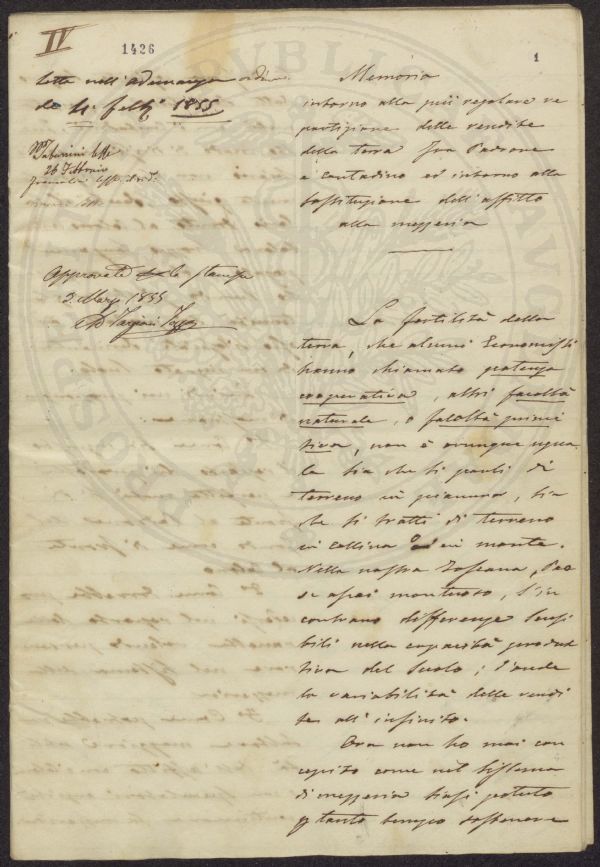 IV
1426
1
letta nell'adunanza ordin.
de 4. Febb.o 1855
26 Febbraio
Approvata la stampa
2. Marzo 1855
Memoria
intorno alla più regolare re
partizione delle rendite
della terra fra Padrone
e contadino ed intorno alla
sostituzione dell'affitto
alla mezzeria
La fertilità della
terra, che alcuni Economisti
hanno chiamato potenza
cooperativa, altri facoltà
naturale, o facoltà primi
tiva, non è ovunque ugua
le sia che si parli di
terreno in pianura, sia
che si tratti di terreno
in collina od in monte.
Nella nostra Toscana, Pae
se assai montuoso, s'in
contrano differenze sensi
bili nella capacità produt
tiva del suolo; d'onde
la variabilità delle rendi
te all'infinito.
Ora non ho mai con
cepito come nel sistema
di mezzeria siasi potuto
p tanto tempo sostenere